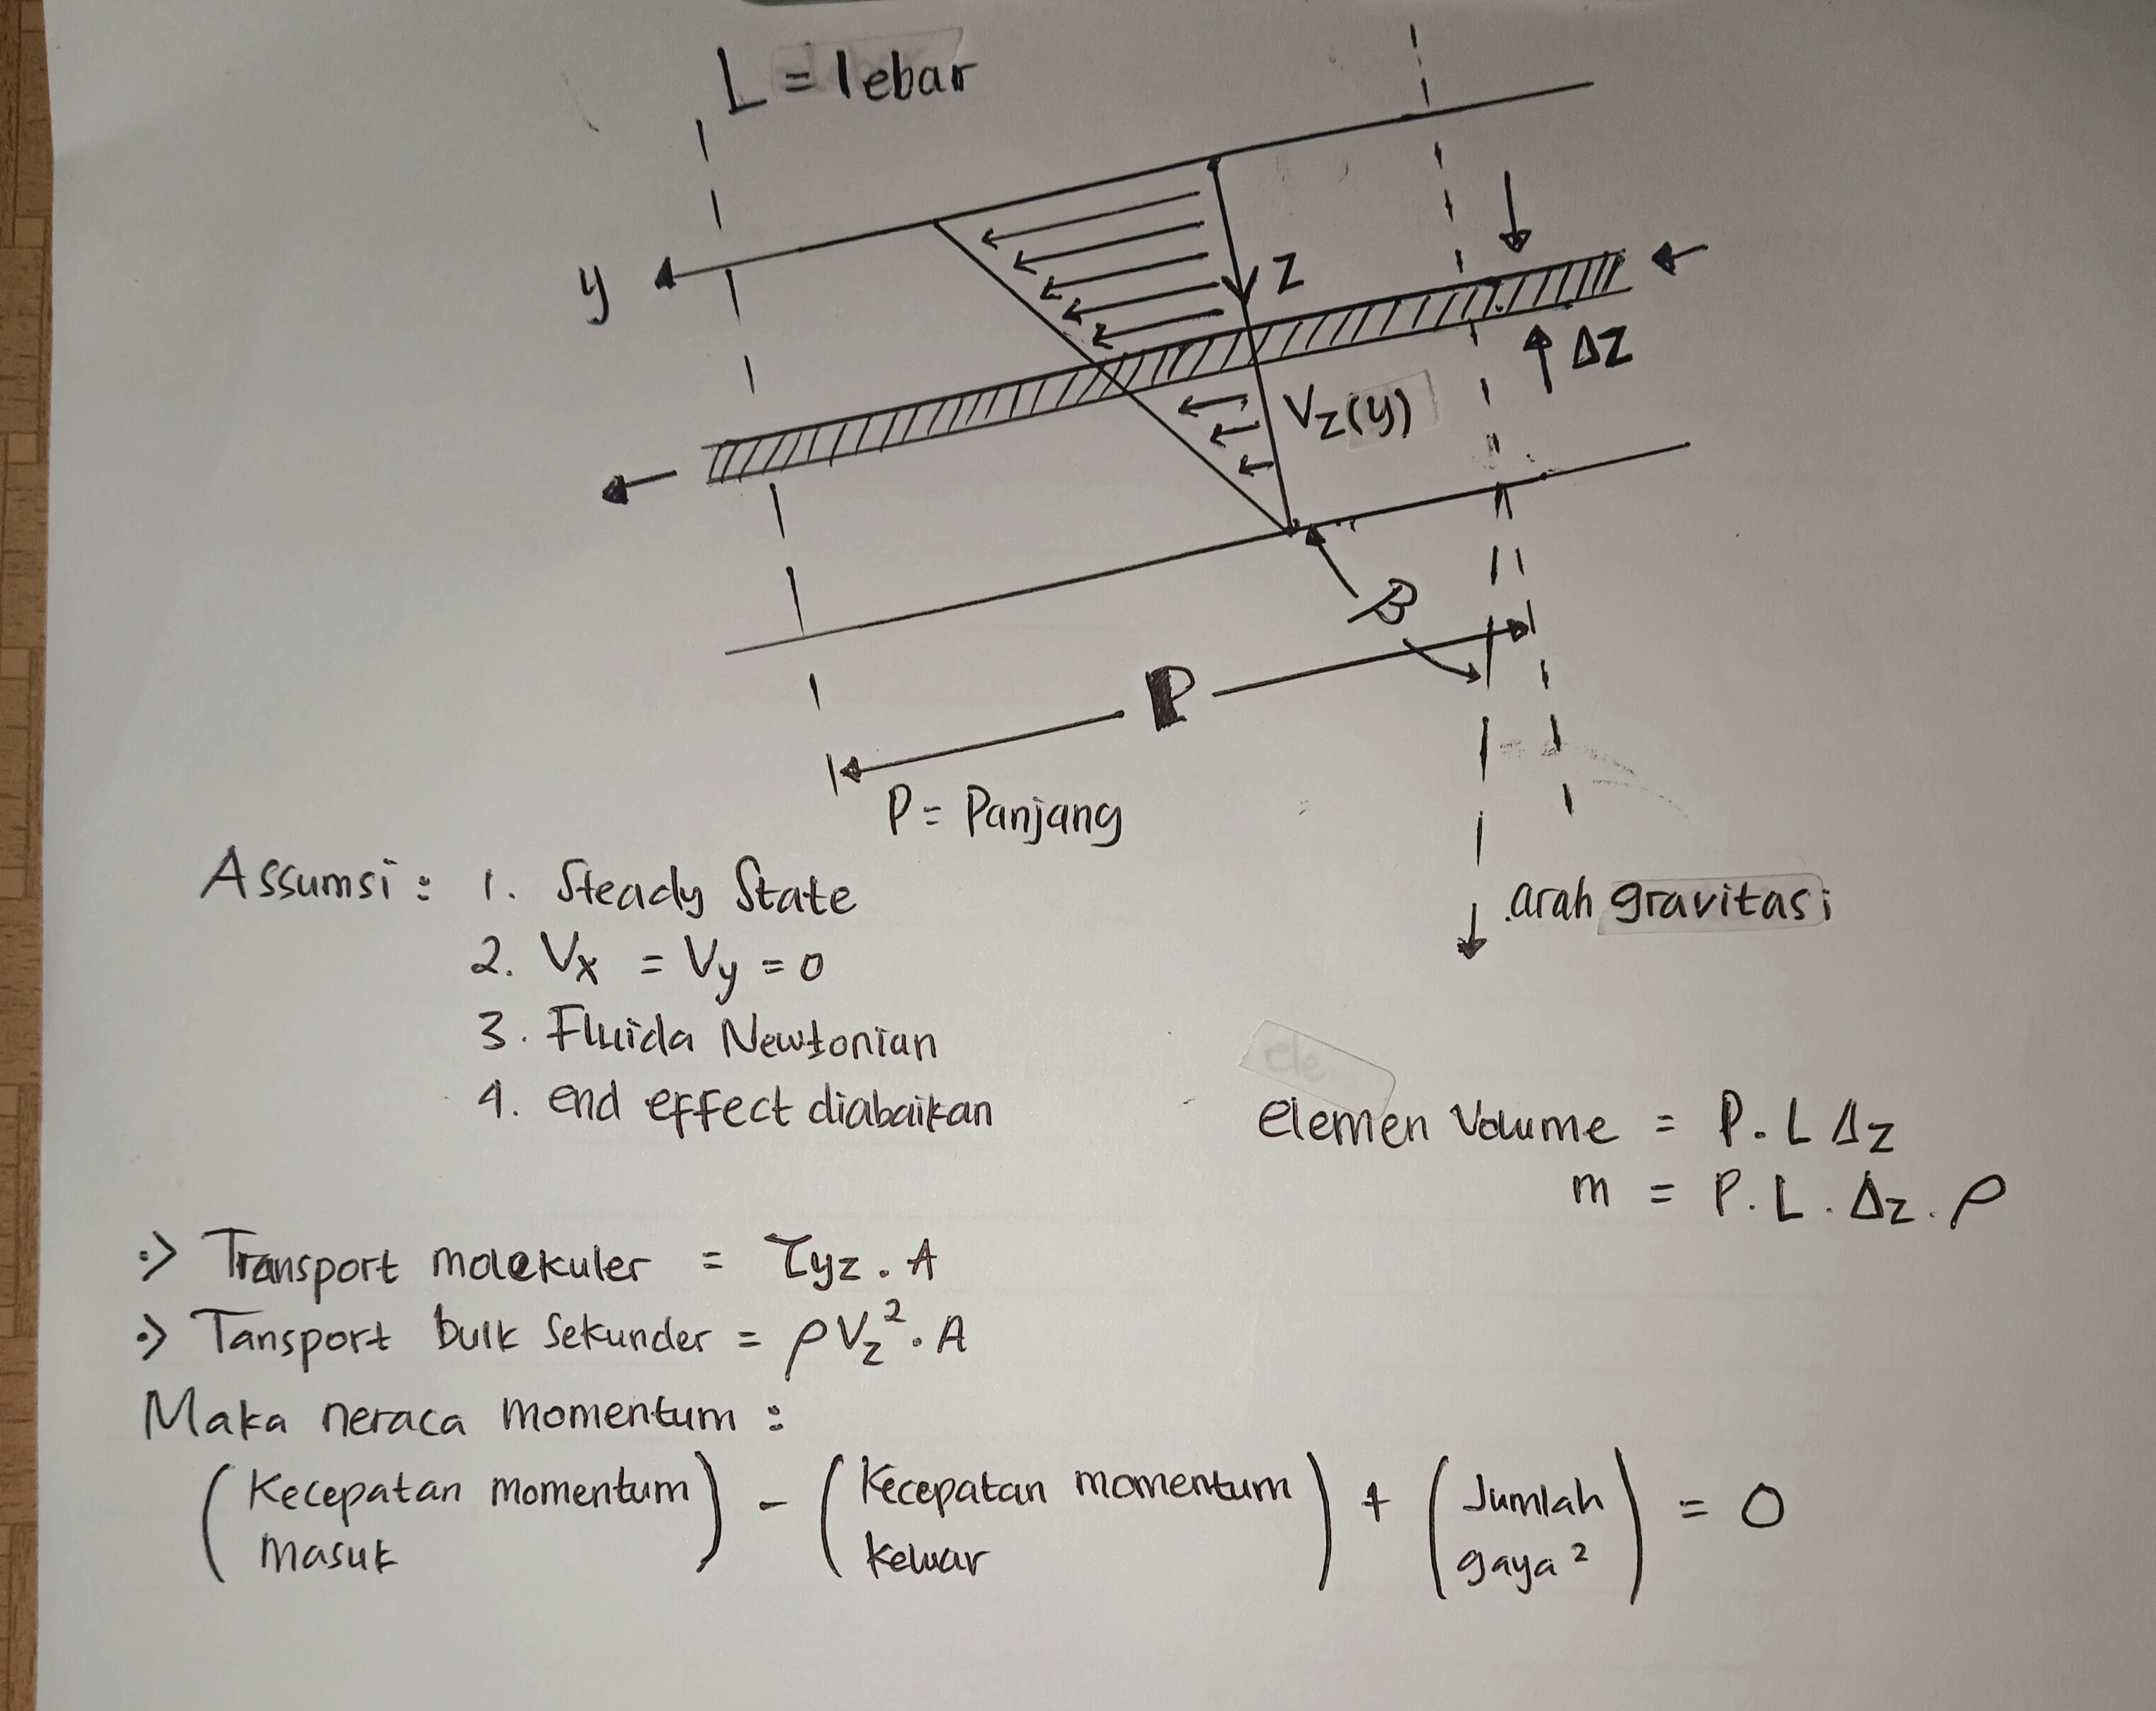 L = lebar
y
Z
ΔZ
Vz(y)
β
P
P = Panjang
arah gravitasi
Assumsi : 1. Steady State
2. Vx = Vy = 0
3. Fluida Newtonian
4. end effect diabaikan
ele
elemen Volume = P. L Δz
m = P. L . Δz . ρ
•> Transport molekuler = τyz . A
•> Tansport bulk Sekunder = ρVz² . A
Maka neraca momentum :
(Kecepatan momentum masuk) - (Kecepatan momentum keluar) + (Jumlah gaya²) = 0